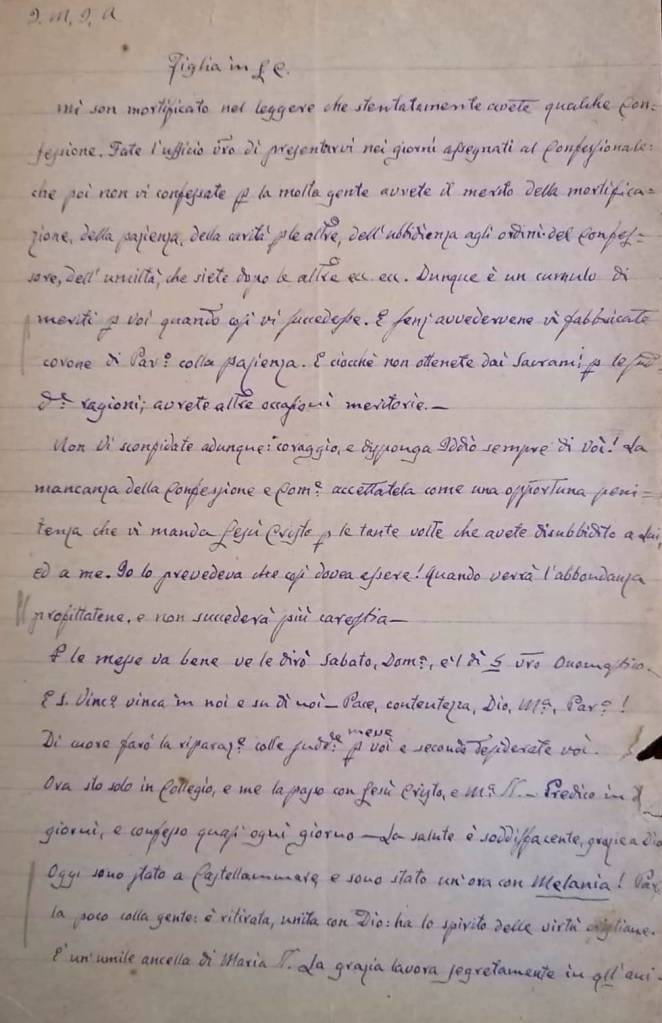 J. M. J. A.
Figlia in G. C.
Mi son mortificato nel leggere che stentatamente avete qualche Con=
fessione. Fate l'ufficio vro di presentarvi nei giorni assegnati al Confessionale:
che poi non vi confessate p la molta gente avvete il merito della mortifica=
zione, della pazienza, della carità p le altre, dell'ubbidienza agli ordini del Confes=
sore, dell'umiltà, che siete dopo le altre ec. ec. Dunque è un cumulo di
meriti p voi quando così vi succedesse. E senz'avvedervene vi fabbricate
corone di Par.o colla pazienza. E ciocchè non ottenete dai Sacram.i p le sud=
d.e ragioni; avrete altre occasioni meritorie. —
Non vi sconfidate adunque: coraggio, e disponga Iddio sempre di voi! La
mancanza della Confessione e Com.e accettatela come una opportuna peni=
tenza che vi manda Gesù Cristo p le tante volte che avete disubbidito a Lui,
ed a me. Io lo prevedeva che così dovea essere! Quando verrà l'abbondanza
profittatene, e non succederà più carestia —
P le messe va bene ve le dirò Sabato, Dom.a, e'l dì 5 vro Onomastico.
E S. Vinc.o vinca in noi e su di noi — Pace, contentezza, Dio, M.a, Par.o!
Di cuore farò la riparaz.e colle sudd.e messe p voi e secondo desiderate voi.
Ora sto solo in Collegio, e me la passo con Gesù Cristo, e M.a SS. — Predico in
giorni, e confesso quasi ogni giorno — La salute è soddisfacente, grazie a Dio
Oggi sono stato a Castellammare e sono stato un'ora con Melania! Par=
la poco colla gente: è ritirata, unita con Dio: ha lo spirito delle virtù cristiane.
E' un'umile ancella di Maria SS. La grazia lavora segretamente in qll'ani=